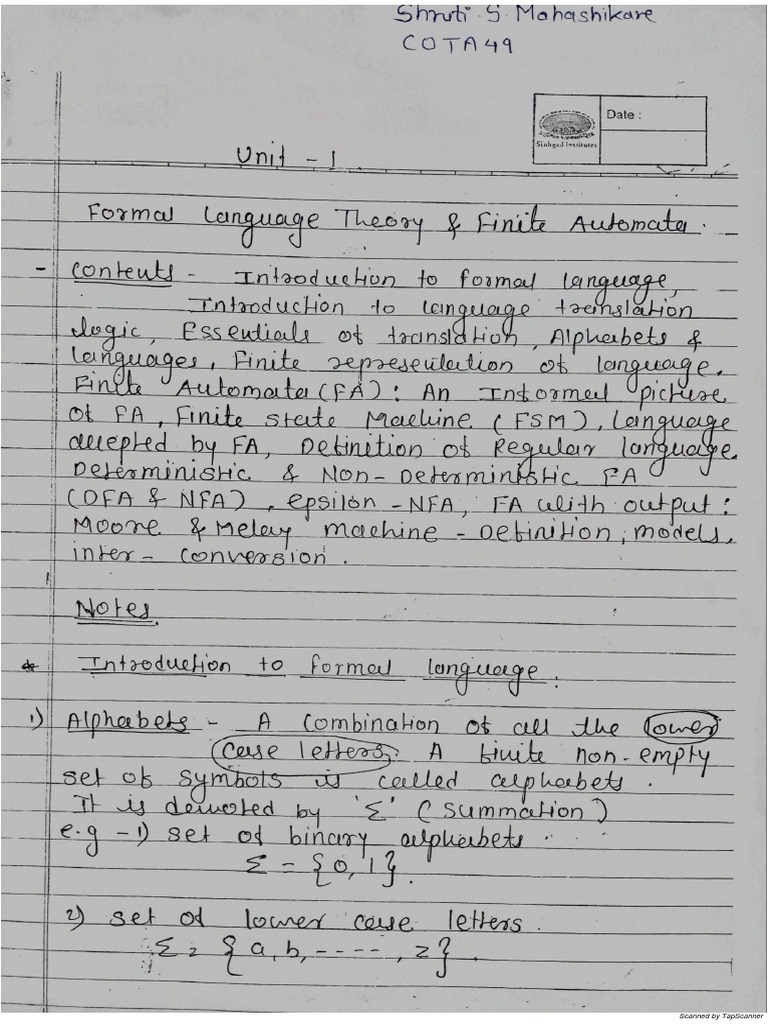 Shruti S. Mahashikare
COTA49
Date :
Sinhgad Institutes
Unit - 1
Formal Language Theory & Finite Automata.
- Contents - Introduction to formal language,
Introduction to language translation
logic, Essentials of translation, Alphabets &
languages, Finite representation of language.
Finite Automata (FA): An Informal picture
of FA, Finite state Machine (FSM), Language
accepted by FA, Definition of Regular language.
Deterministic & Non-Deterministic FA
(DFA & NFA), epsilon-NFA, FA with output:
Moore & Melay machine - Definition, models,
inter-conversion.
Notes
* Introduction to formal language.
1) Alphabets - A combination of all the lower
case letters. A finite non-empty
set of symbols is called alphabets.
It is denoted by 'Σ' (summation)
e.g -1) set of binary alphabets.
Σ = {0, 1}.
2) set of lower case letters.
Σ = {a, b, ----, z}.
Scanned by TapScanner